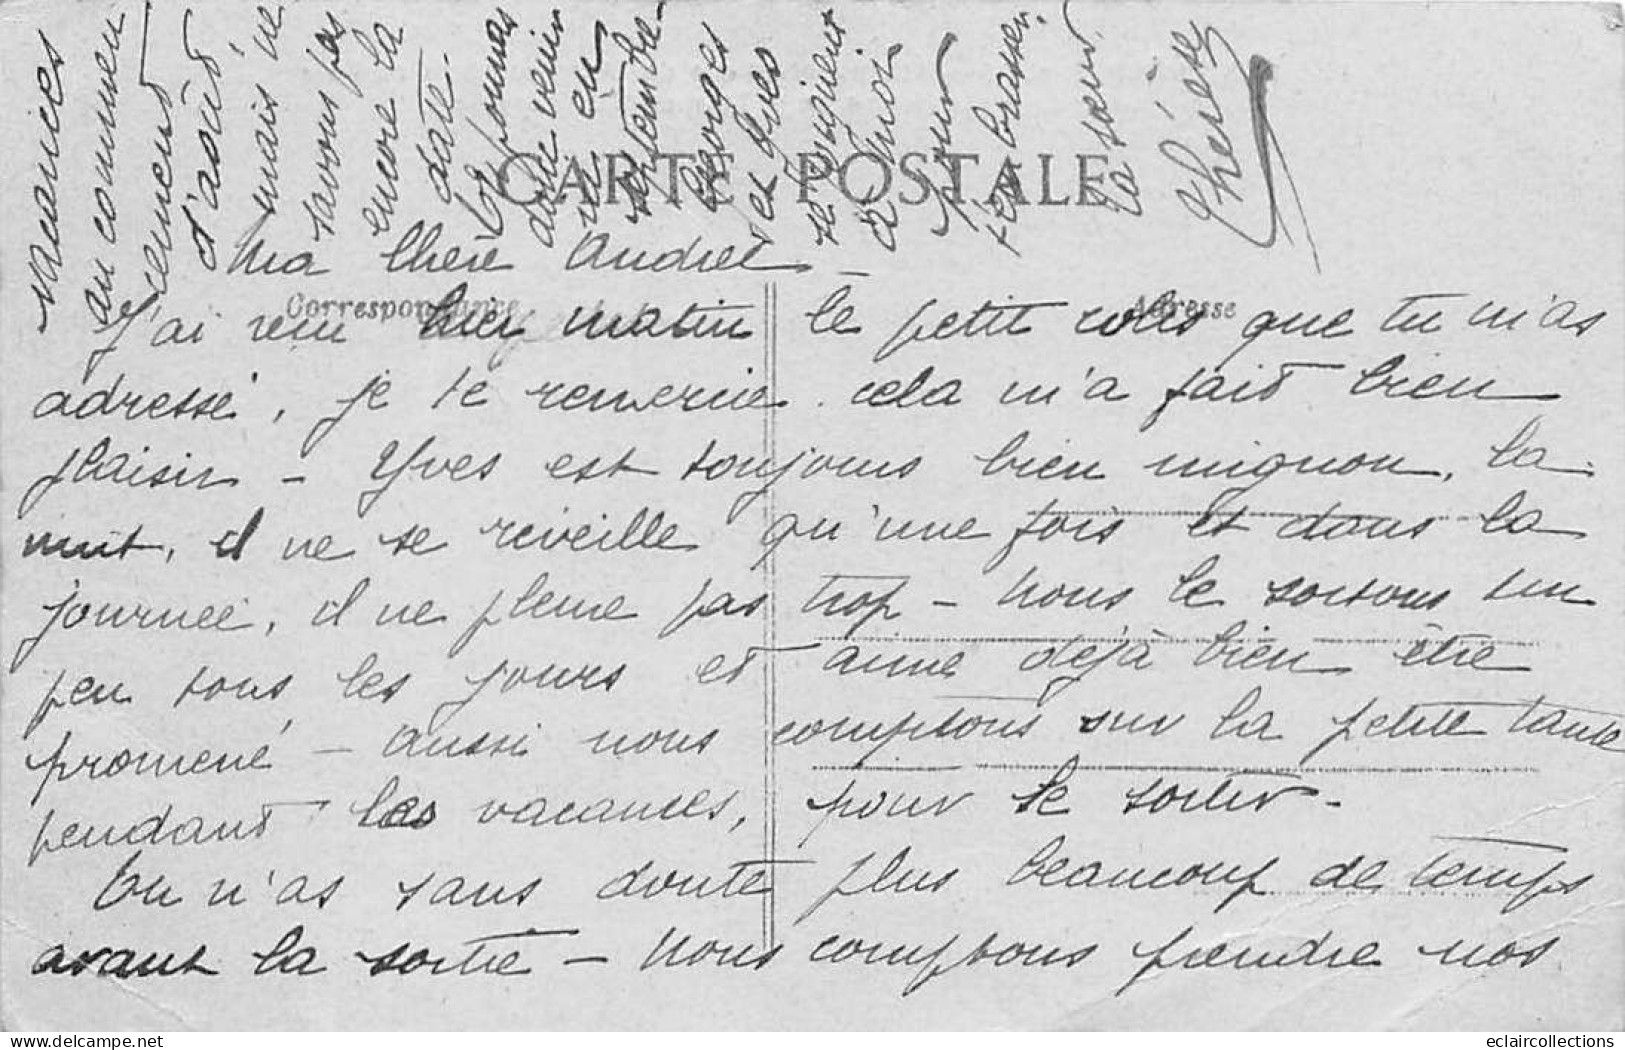 CARTE POSTALE
Correspondance
Adresse
Ma chère Andrée _
J'ai reçu hier matin le petit colis que tu m'as
adressé, je te remercie cela m'a fait bien
plaisir - Yves est toujours bien mignon, la
nuit, il ne se réveille qu'une fois et dans la
journée, il ne pleure pas trop - Nous le sortons un
peu tous les jours et aime déjà bien être
promené - Aussi nous comptons sur la petite tante
pendant les vacances, pour le sortir -
Tu n'as sans doute plus beaucoup de temps
avant la sortie - Nous comptons prendre nos
vacances
au commen
cement
d'août
mais ne
savons pas
encore la
date.
Tu pourras
donc venir
en
septembre.
Georges
et Yves
se joignent
à moi
pour
t'embrasser.
Ta sœur
Thérèse
eclaircollections